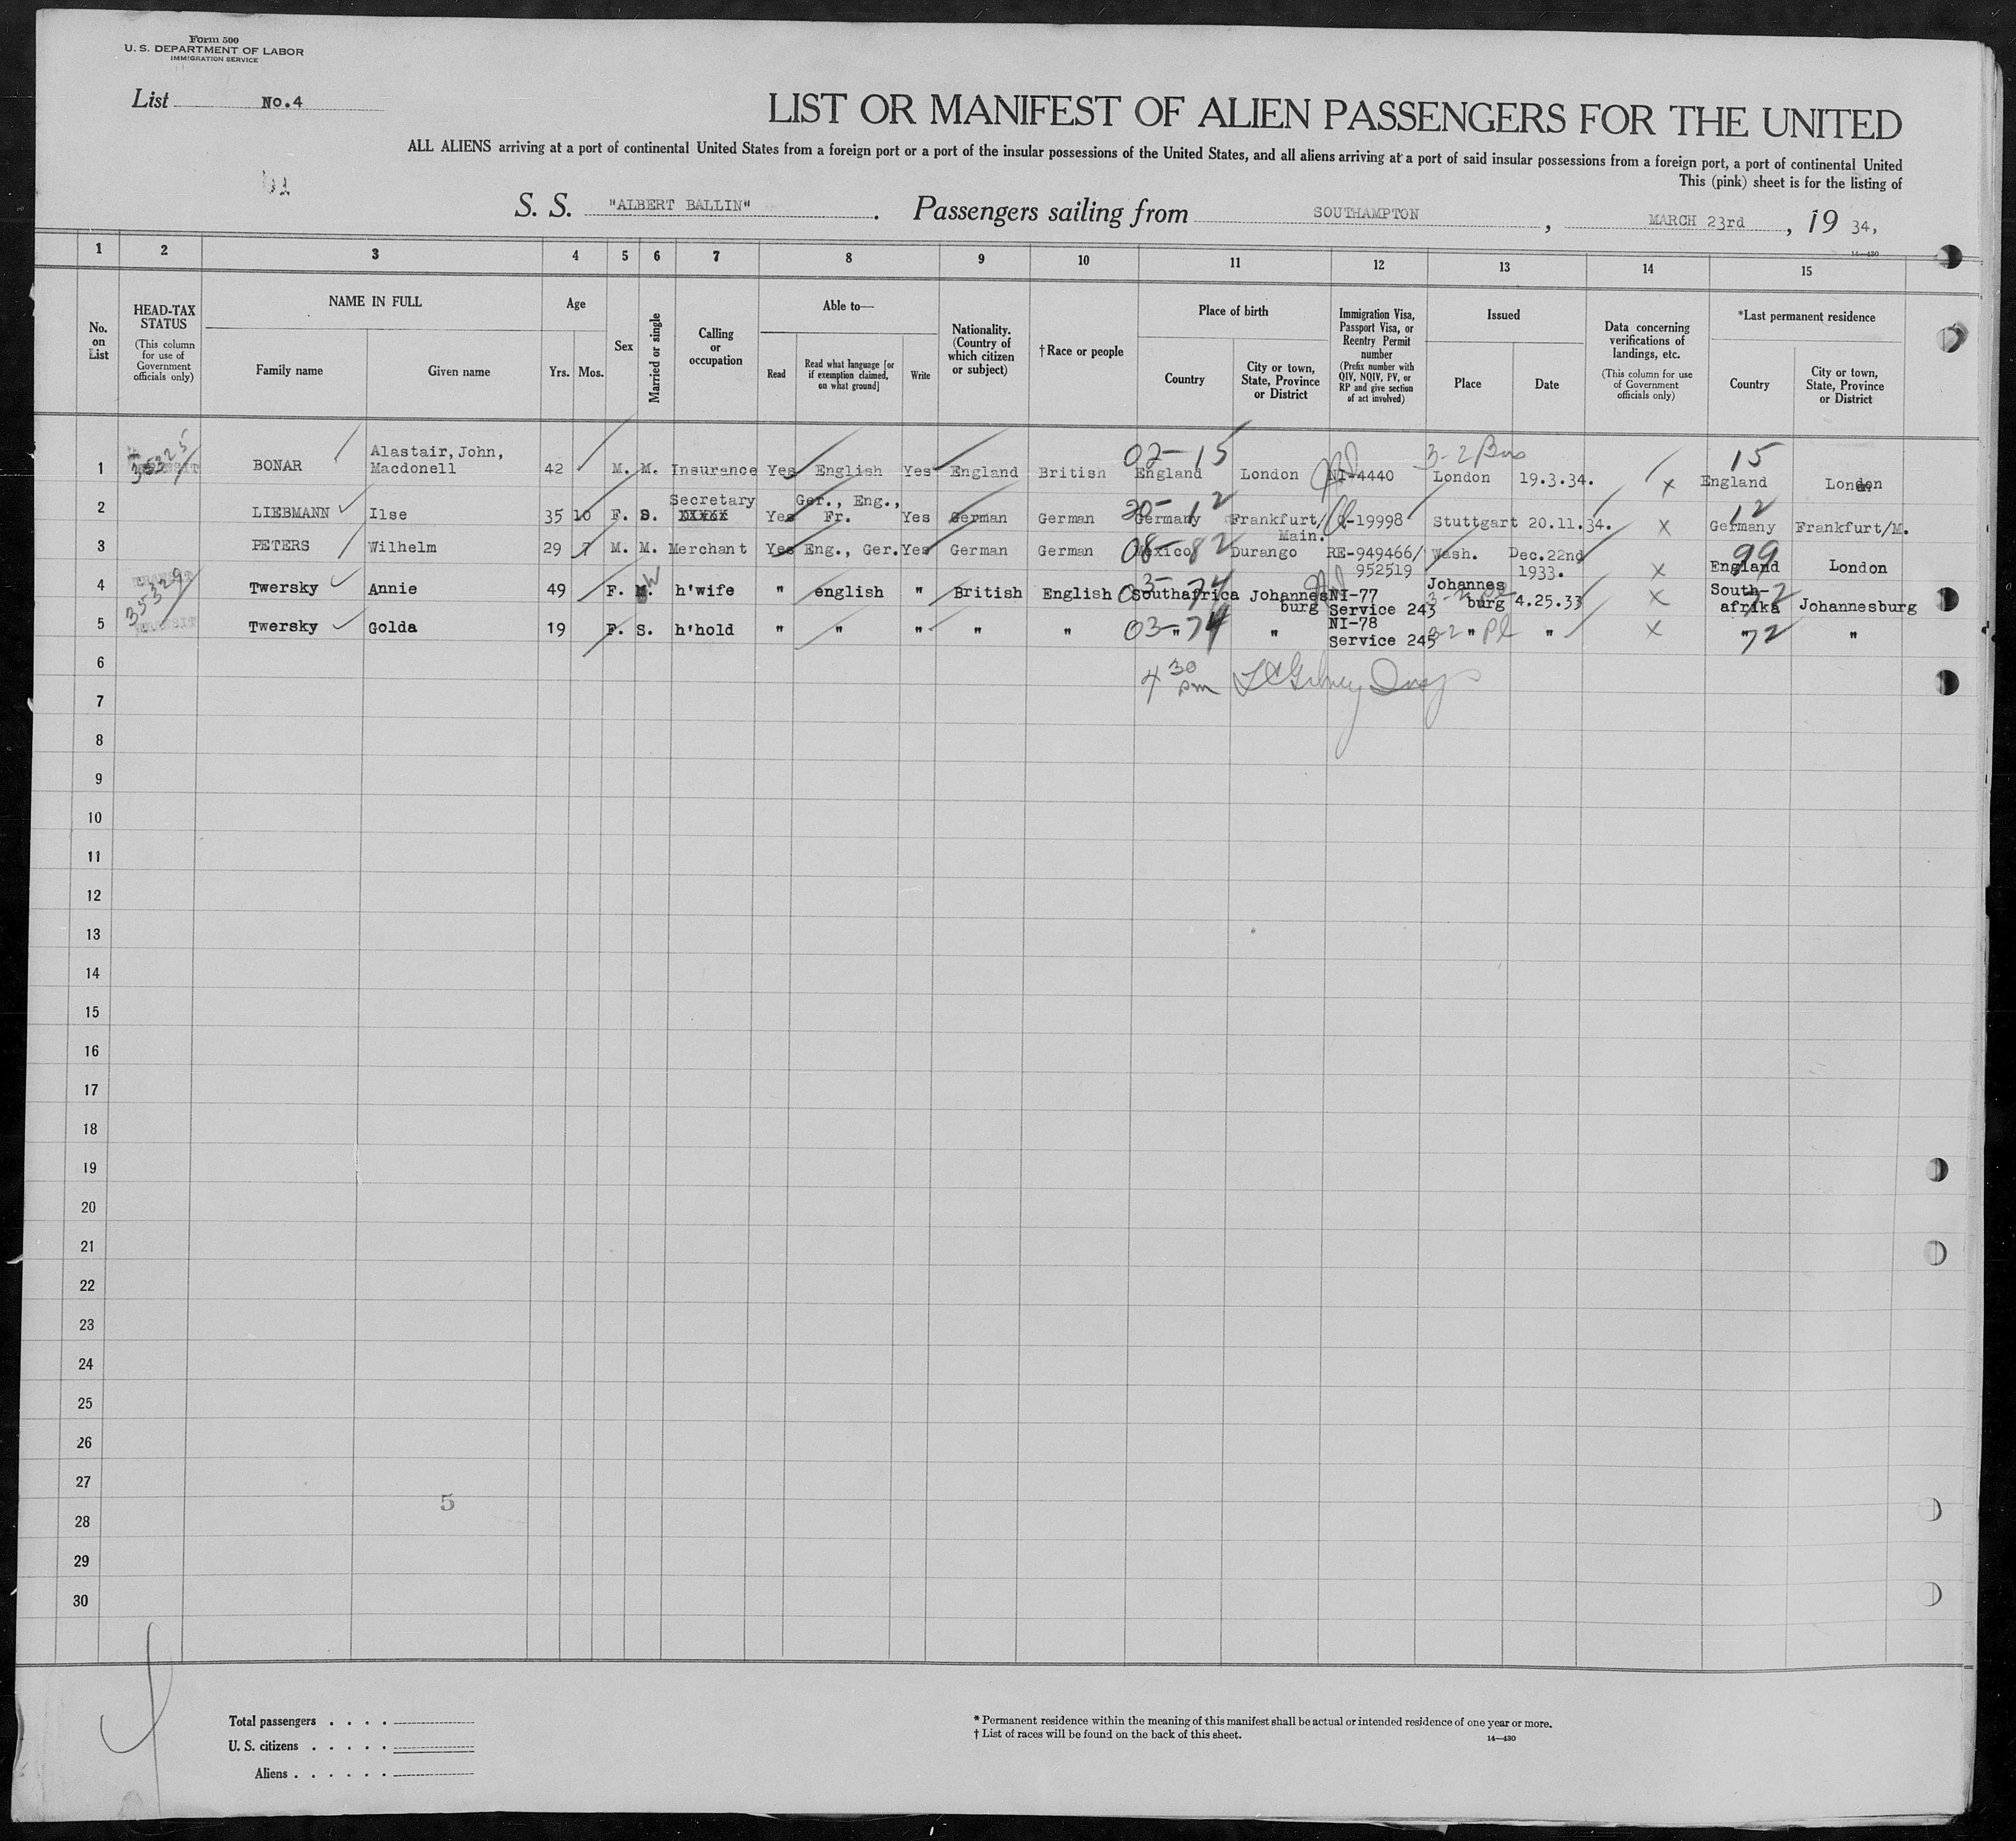 Form 500
U. S. DEPARTMENT OF LABOR
IMMIGRATION SERVICE
List No.4
LIST OR MANIFEST OF ALIEN PASSENGERS FOR THE UNITED
ALL ALIENS arriving at a port of continental United States from a foreign port or a port of the insular possessions of the United States, and all aliens arriving at a port of said insular possessions from a foreign port, a port of continental United
This (pink) sheet is for the listing of
S. S. "ALBERT BALLIN". Passengers sailing from SOUTHAMPTON, MARCH 23rd, 19 34,
14—430
1 2 3 4 5 6 7 8 9 10 11 12 13 14 15
No. on List
HEAD-TAX STATUS
(This column for use of Government officials only)
NAME IN FULL
Family name Given name
Age
Yrs. Mos.
Sex
Married or single
Calling or occupation
Able to—
Read
Read what language [or if exemption claimed, on what ground]
Write
Nationality. (Country of which citizen or subject)
† Race or people
Place of birth
Country
City or town, State, Province or District
Immigration Visa, Passport Visa, or Reentry Permit number
(Prefix number with QIV, NQIV, PV, or RP and give section of act involved)
Issued
Place Date
Data concerning verifications of landings, etc.
(This column for use of Government officials only)
*Last permanent residence
Country
City or town, State, Province or District
35325
02-15 3-2 Bus 15
Alastair, John,
1 TRANSIT BONAR Macdonell 42 M. M. Insurance Yes English Yes England British England London NI-4440 London 19.3.34. x England London
Secretary Ger., Eng.,
20-12 12
2 LIEBMANN Ilse 35 10 F. S. XXXXX Yes Fr. Yes German German Germany Frankfurt/Main. Q-19998 Stuttgart 20.11.34. x Germany Frankfurt/M.
08-82 99
3 PETERS Wilhelm 29 7 M. M. Merchant Yes Eng., Ger. Yes German German Mexico Durango RE-949466/952519 Wash. Dec.22nd 1933. x England London
35329
03-74 3-2 pl 72
4 TRANSIT Twersky Annie 49 F. M. W h'wife " english " British English Southafrica Johannesburg NI-77 Service 243 Johannesburg 4.25.33 x South-afrika Johannesburg
03-74 3-2 Pl 72
5 TRANSIT Twersky Golda 19 F. S. h'hold " " " " " " " NI-78 Service 243 " " x " "
4 30 pm
6
7
8
9
10
11
12
13
14
15
16
17
18
19
20
21
22
23
24
25
26
27
5
28
29
30
Total passengers . . . .
U. S. citizens . . . . .
Aliens . . . . . .
* Permanent residence within the meaning of this manifest shall be actual or intended residence of one year or more.
† List of races will be found on the back of this sheet.
14—430